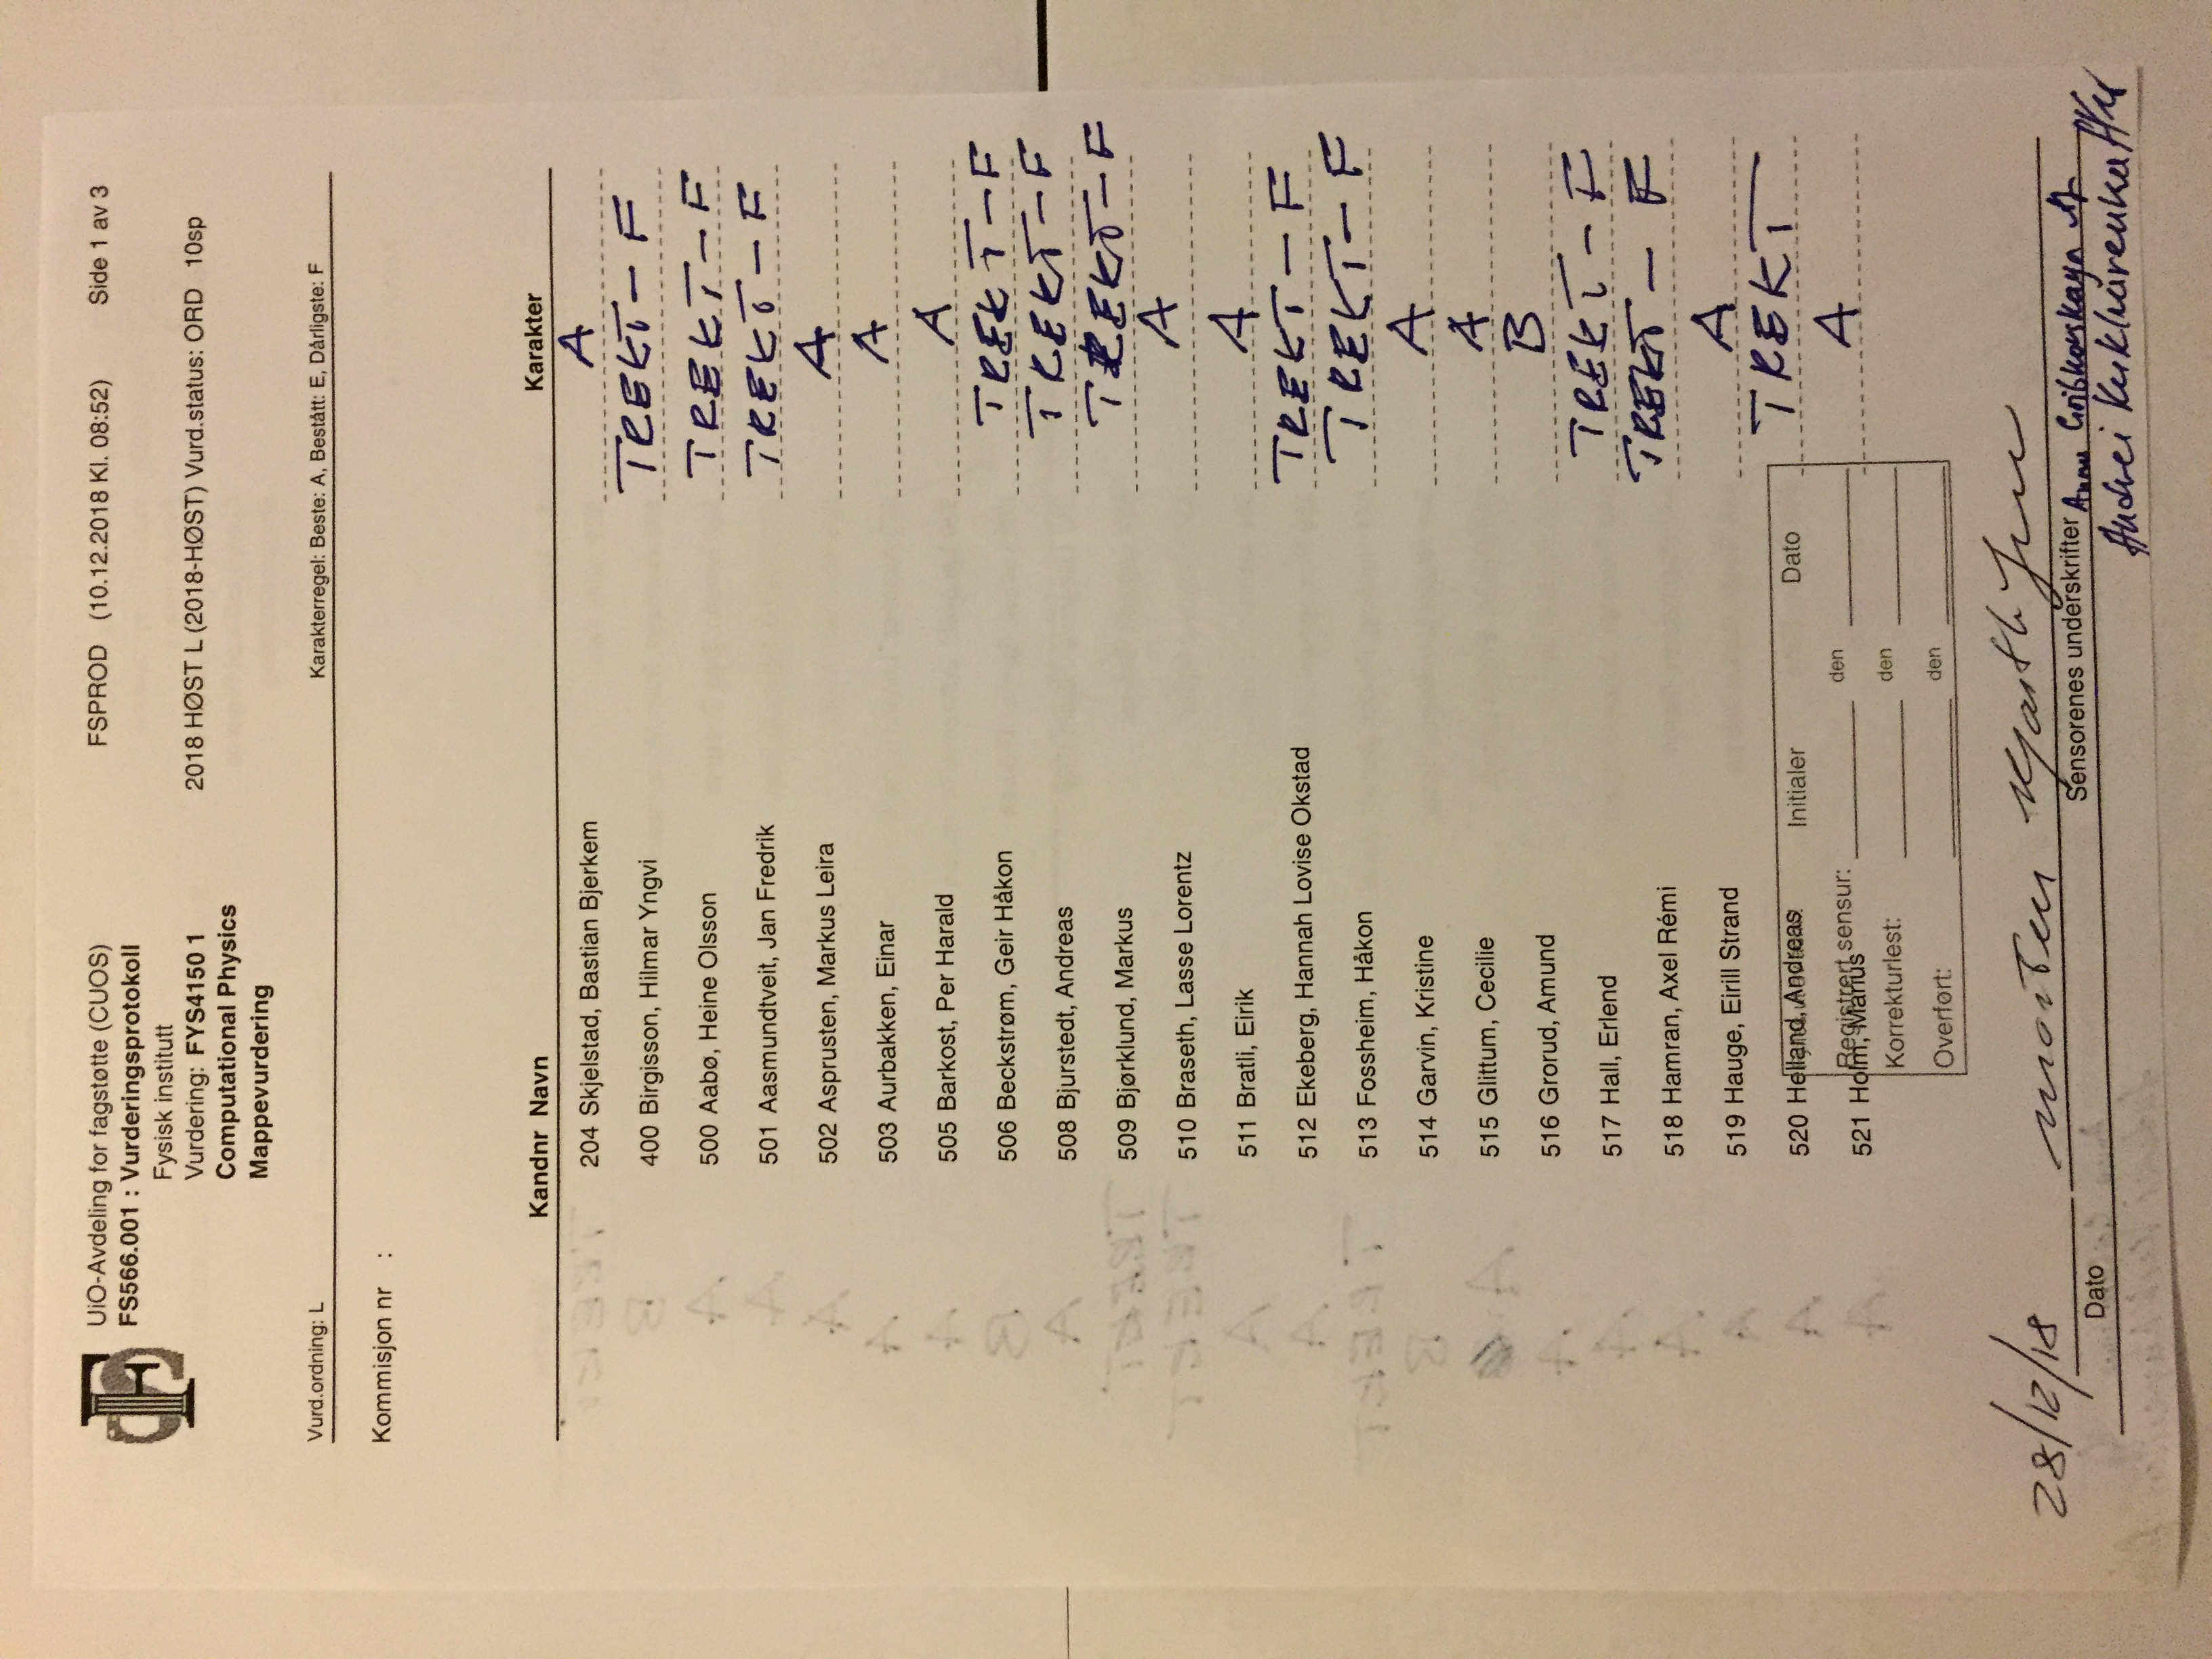 UiO-Avdeling for fagstøtte (CUOS) FSPROD (10.12.2018 Kl. 08:52) Side 1 av 3
FS566.001 : Vurderingsprotokoll
Fysisk institutt
Vurdering: FYS4150 1 2018 HØST L (2018-HØST) Vurd.status: ORD 10sp
Computational Physics
Mappevurdering
Vurd.ordning: L Karakterregel: Beste: A, Bestått: E, Dårligste: F
Kommisjon nr :
Kandnr Navn Karakter
204 Skjelstad, Bastian Bjerkem A
400 Birgisson, Hilmar Yngvi TREKT - F
500 Aabø, Heine Olsson TREKT - F
501 Aasmundtveit, Jan Fredrik TREKT - F
502 Asprusten, Markus Leira A
503 Aurbakken, Einar A
505 Barkost, Per Harald A
506 Beckstrøm, Geir Håkon TREKT - F
508 Bjurstedt, Andreas TREKT - F
509 Bjørklund, Markus TREKT - F
510 Braseth, Lasse Lorentz A
511 Bratli, Eirik A
512 Ekeberg, Hannah Lovise Okstad TREKT - F
513 Fossheim, Håkon TREKT - F
514 Garvin, Kristine A
515 Glittum, Cecilie A
516 Grorud, Amund B
517 Hall, Erlend TREKT - F
518 Hamran, Axel Rémi TREKT - F
519 Hauge, Eirill Strand A
520 Helland, Andreas TREKT
Initialer Dato
Registrert sensur: den
521 Holm, Marius A
Korrekturlest: den
Overført: den
28/12/18 Morten
Dato Sensorenes underskrifter Anna Gribkovskaya
Andrei Kukharenka